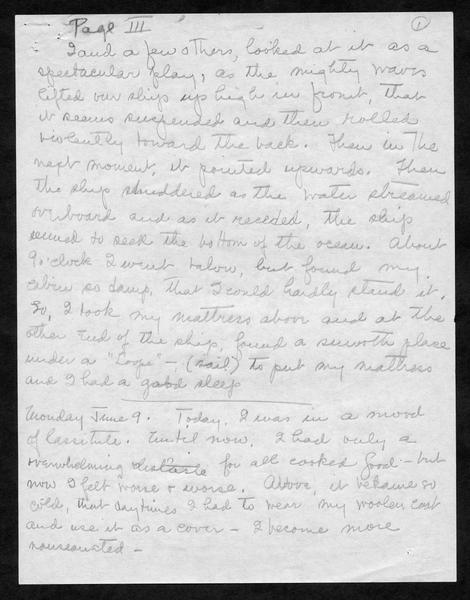 Page III
1
I and a few others, looked at it as a
spectacular play, as the mighty waves
lifted our ship up high in front, that
it seems suspended and then rolled
violently toward the back. Then in the
next moment, it pointed upwards. Then
the ship shuddered as the water streamed
overboard and as it receded, the ship
seemed to seek the bottom of the ocean. About
9 o'clock I went below, but found my
cabin so damp, that I could hardly stand it.
So, I took my mattress above and at the
other end of the ship, found a smooth place
under a "Loope" - (sail) to put my mattress
and I had a good sleep
Monday June 9. Today, I was in a mood
of lassitude. Until now, I had only a
overwhelming distaste for all cooked food - but
now I felt worse & worse. Above, it became so
cold, that daytimes I had to wear my woolen coat
and use it as a cover - I become more
nauseated -